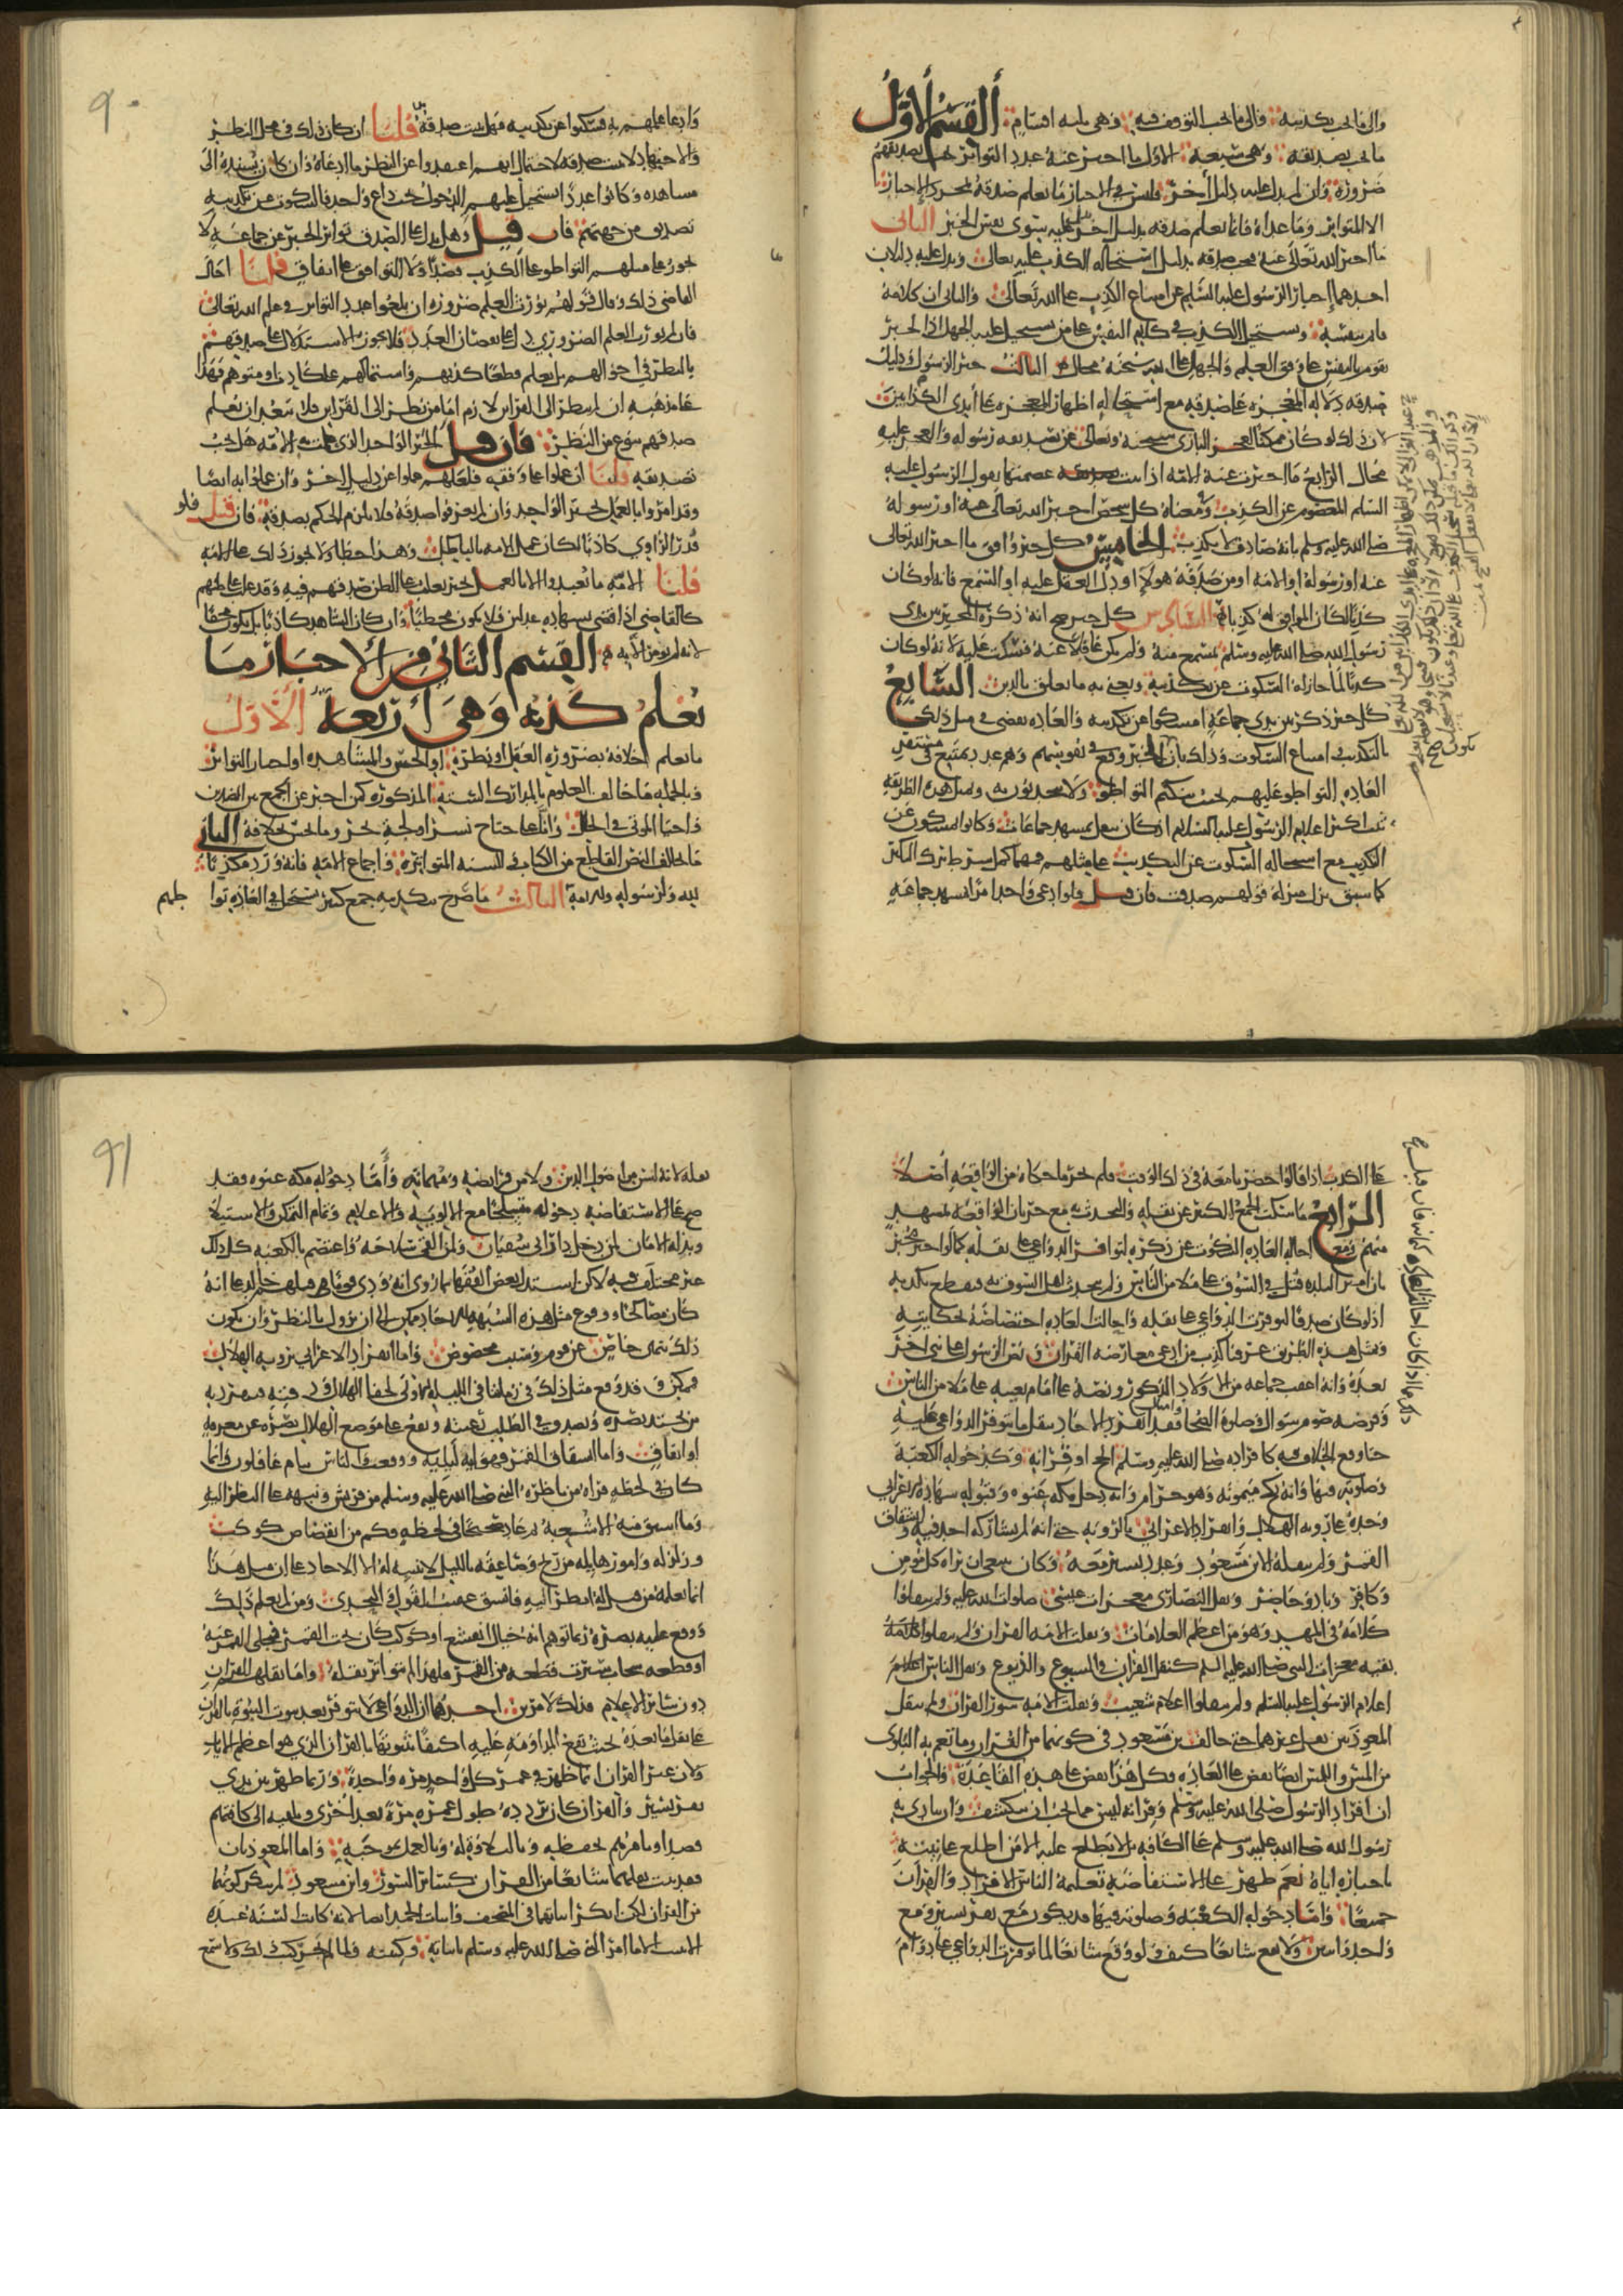 والى ما يجب تكذيبه والى ما يجب التوقف فيه وهي ثلثه اقسام القسم الاول
ما يجب تصديقه وهي سبعة الاول ما اخبر عنه عدد التواتر يجب تصديقهم
ضرورة وان لم يدل عليه دليل اخر فليس في الاخبار ما يعلم صدقه بمجرد الاخبار
الا المتواتر وما عداه فانما يعلم صدقه بدليل اخر عليه سوى نفس الخبر الثاني
ما اخبر الله تعالى عنه يجب صدقه بدليل استحاله الكذب عليه تعالى ويدل عليه دليلان
احدهما اخبار الرسول عليه السلم عن امتناع الكذب على الله تعالى والثاني ان كلامه
قائم بنفسه ويستحيل الكذب في كلام النفس على من يستحيل عليه الجهل اذ الخبر
يقوم بالنفس على وفق العلم والجهل على الله سبحنه محال الثالث خبر الرسول ودليل
صدقه دلاله المعجزه على صدقه مع استحاله اظهار المعجزه على ايدي الكذابين
لان ذلك لو كان ممكنا لعجز الباري سبحنه وتعالى عن تصديق رسوله والعجز عليه
محال الرابع ما اخبرت عنه الامه اذ ثبت عصمتها بقول الرسول عليه
السلم المعصوم عن الكذب وفي معناه كل شخص اخبر الله تعالى عنه او رسوله
صلى الله عليه وسلم بانه صادق لا يكذب الخامس كل خبر وافق ما اخبر الله تعالى
عنه او رسوله او الامه او من صدقه هولاء او دل العقل عليه او السمع فانه لو كان
كذبا لكان الموافق له كذبا السادس كل خبر صح انه ذكره المخبر بين يدي
رسول الله صلى الله عليه وسلم بمسمع منه ولم يكن غافلا عنه فسكت عليه لانه لو كان
كذبا لما جاز له السكوت عن تكذيبه ونعني به ما يتعلق بالدين السابع
كل خبر ذكر بين يدي جماعة امسكوا عن تكذيبه والعاده تقضي في مثل ذلك
بالتكذيب امتناع السكوت وذلك بان للخبر وقع في نفوسهم وهم عدد يمتنع في مستقر
العاده التواطو عليهم بحيث ينكتم التواطو ولا يتحدثون به وبمثل هذه الطريقه
ثبت اكثر اعلام الرسول عليه السلام اذ كان ينقل بمشهد جماعات وكانوا يسكتون عن
التكذيب مع استحاله السكوت عن التكذيب على مثلهم فمهما كمل شرط ترك النكير
كما سبق نزل منزلة قولهم صدقت فان قيل فلو ادعى واحد امرا بمشهد جماعه
وادعى علمهم به فسكتوا عن تكذيبه فهل يثبت صدقه قلنا ان كان ذلك في محل النظر
والاجتهاد لا يثبت صدقه لاحتمال انهم اعتقدوا عن النظر ما ادعاه وان كان يسنده الى
مشاهده وكانوا عددا يستحيل عليهم الدخول تحت داع واحد فالسكوت عن تكذيبه
تصديق من جهتهم فان قيل وهل يدل على الصدق تواتر الخبر عن جماعه لا
يجوز على مثلهم التواطو على الكذب قصدا ولا التوافق على اتفاق قلنا احال
القاضي ذلك وقال قولهم يورث العلم ضرورة ان بلغوا عدد التواتر في علم الله تعالى
فان لم يورث العلم الضروري دل على نقصان العدد فلا يجوز الاستدلال على صدقهم
بالنظر في احوالهم بل يعلم قطعا كذبهم واشتمالهم على كاذب او متوهم وهذا
على مذهبه ان لم ينظر الى القراين لازم اما من نظر الى القراين فلا يبعد ان يعلم
صدقهم بنوع من النظر فان قيل الخبر الواحد الذي عملت به الامه هل يجب
تصديقه قلنا ان عملوا على وفقه فلعلهم عملوا عن دليل اخر وان عملوا به ايضا
وقد امروا بالعمل بخبر الواحد وان لم يعرفوا صدقه فلا يلزم الحكم بصدقه فان قيل فلو
قدر الراوي كاذبا لكان عمل الامه بالباطل وهذا خطا ولا يجوز ذلك على الامه
قلنا الامه ما تعبدوا الا بالعمل بخبر يغلب على الظن صدقهم فيه وقد غلب على ظنهم
كالقاضي اذا قضى بشهاده عدلين فلا يكون مخطيا وان كان الشاهد كاذبا بل يكون محقا
لانه لم يومر الا به القسم الثاني من الاخبار ما
يعلم كذبه وهي اربعة الاول
ما يعلم خلافه بضرورة العقل او نظره او الحس والمشاهده او اخبار التواتر
وبالجمله ما خالف المعلوم بالمدارك الستة المذكوره كمن اخبر عن الجمع بين الضدين
واحيا الموتى في الحال وانا على جناح نسر او لجة بحر وما يحس خلافه الثاني
ما يخالف النص القاطع من الكتاب والسنه المتواتره واجماع الامه فانه ورد مكذبا
لله ولرسوله وللامة الثالث ما صرح بتكذيبه جمع كثير يستحيل في العاده تواطيهم
على الكذب اذا قالوا حضرنا معه في ذلك الوقت فلم نجد ما حكاه من الواقعة اصلا
الرابع ما سكت الجمع الكثير عن نقله والتحدث به مع جريان الواقعه بمشهد
منهم ومع احاله العاده السكوت عن ذكره لتوافر الدواعي على نقله كما لو اخبر مخبر
بان امير البلده قتل في السوق على ملا من الناس ولم يتحدث اهل السوق به فيقطع بكذبه
اذ لو كان صدقا لتوفرت الدواعي على نقله واحالت العاده اختصاصه بحكايته
وبمثل هذه الطريق عرفنا كذب من ادعى معارضه القران ونص الرسول على نبي اخر
بعده وانه اعقب جماعه من الاولاد الذكور ونصه على امام بعينه على ملا من الناس
وفرضه صوم شوال وصلوة الضحى وامثال فقد انفرد الاحاد بنقل ما تتوفر الدواعي عليه
حتى وقع الخلاف فيه كافراده صلى الله عليه وسلم الحج او قرانه وكدخوله الكعبة
وصلوته فيها وانه نكح ميمونه وهو حرام وانه دخل مكه عنوه وقبوله شهادة الاعرابي
وحده على رويه الهلال وانفراد الاعرابي بالرويه حتى انه لم يشاركه احد فيه وانشقاق
القمر ولم ينقله الا ابن مسعود وعدد يسير معه وكان ينبغي ان يراه كل مومن
وكافر وباد وحاضر ونقل النصارى معجزات عيسى صلوات الله عليه ولم ينقلوا
كلامه في المهد وهو من اعظم العلامات ونقلت الامه القران ولم ينقلوا
بقية معجزات النبي صلى الله عليه السلم كنقل القران في الشيوع والذيوع ونقل الناس
اعلام الرسول عليه السلم ولم ينقلوا اعلام شعيب ونقلت الامه سور القران ولم تنقل
المعوذتين نقل غيرهما حتى خالف بن مسعود في كونهما من القران وما تعم به البلوى
من اللمس والمس ايضا نقض على العاده وكل هذا نقض على هذه القاعدة والجواب
ان افراد الرسول صلى الله عليه وسلم وقرانه ليس مما يجب ان ينكشف وان ينادي به
رسول الله صلى الله عليه وسلم على الكافه بل لا يطلع عليه الا من اطلع على نيته
باخباره اياه نعم ظهر على الاستفاضه تعليمه الناس الافراد والقران
جميعا واما دخوله الكعبه وصلوته فيها فقد يكون مع نفر يسير ومع
واحد واثنين ولا يقع شايعا كيف ولو وقع شايعا لما توفرت الدواعي على دوام
نقله لانه ليس من اصول الدين ولا من فرايضه ومهماته واما دخوله مكه عنوه فقد
صح على الاستفاضه دخوله متسلحا مع الالويه والاعلام وتمام التمكن والاستيلا
وبذله الامان لمن دخل دار ابي سفيان ولمن القى سلاحه واعتصم بالكعبه كل ذلك
غير مختلف فيه لكن استدل بعض الفقها بما روي انه ودى قوما قتلهم خالد على انه
كان صلحا ووقوع مثل هذه الشبهه للاحاد ممكن الى ان يزول بالنظر وان يكون
ذلك بنهي خاص عن قوم وسبب مخصوص واما انفراد الاعرابي برويه الهلال
فممكن وقد وقع مثل ذلك في زماننا في الليله الاولى لخفا الهلال ودقته فينفرد به
من يحتد بصره ويصدق في الطلب رغبته ويقع على موضع الهلال بصره عن معرفه
او اتفاق واما انشقاق القمر فهو ايه ليليه وقعت والناس نيام غافلون وانما
كان في لحظه فراه من ناظره النبي صلى الله عليه وسلم من قريش ونبهه على النظر اليه
وما انشق منه الا شعبه ثم عاد صحيحا في لحظه فكم من انقضاض كوكب
وزلزله وامور هايله من ريح وصاعقه بالليل لا ينتبه له الا الاحاد على ان مثل هذا
انما يعلمه من قيل له انظر اليه فانشق عقيب القول والتحدي ومن لم يعلم ذلك
ووقع عليه بصره ربما توهم انه خيال انقشع او كوكب كان تحت القمر فتجلى القمر عنه
او قطعه سحاب سترت قطعه من القمر فلهذا لم يتواتر نقله واما نقلهم القران
دون ساير الاعلام فذلك لامرين احدهما ان الدواعي لا تتوفر بعد ثبوت النبوة بالقران
على نقل ما بعده بحيث تقع المداومه عليه اكتفا بثبوتها بالقران الذي هو اعظم الايات
ولان غير القران انما ظهر في عمر كل واحد مره واحدة وربما ظهر بين يدي
نفر يسير والقران كان يردده طول عمره مرة بعد اخرى ويلقيه الى كافتهم
قصدا ويامرهم بحفظه وبالتلاوة له وبالعمل بموجبه واما المعوذتان
فقد ثبت نقلهما شايعا من القران كساير السور وابن مسعود لم ينكر كونهما
من القران لكن انكر اثباتهما في المصحف واثبات الحمد ايضا لانه كانت السنه عنده
لا يثبت الا ما امر النبي صلى الله عليه وسلم باثباته وكتبه ولما لم يجد كتب ذلك ولا سمع